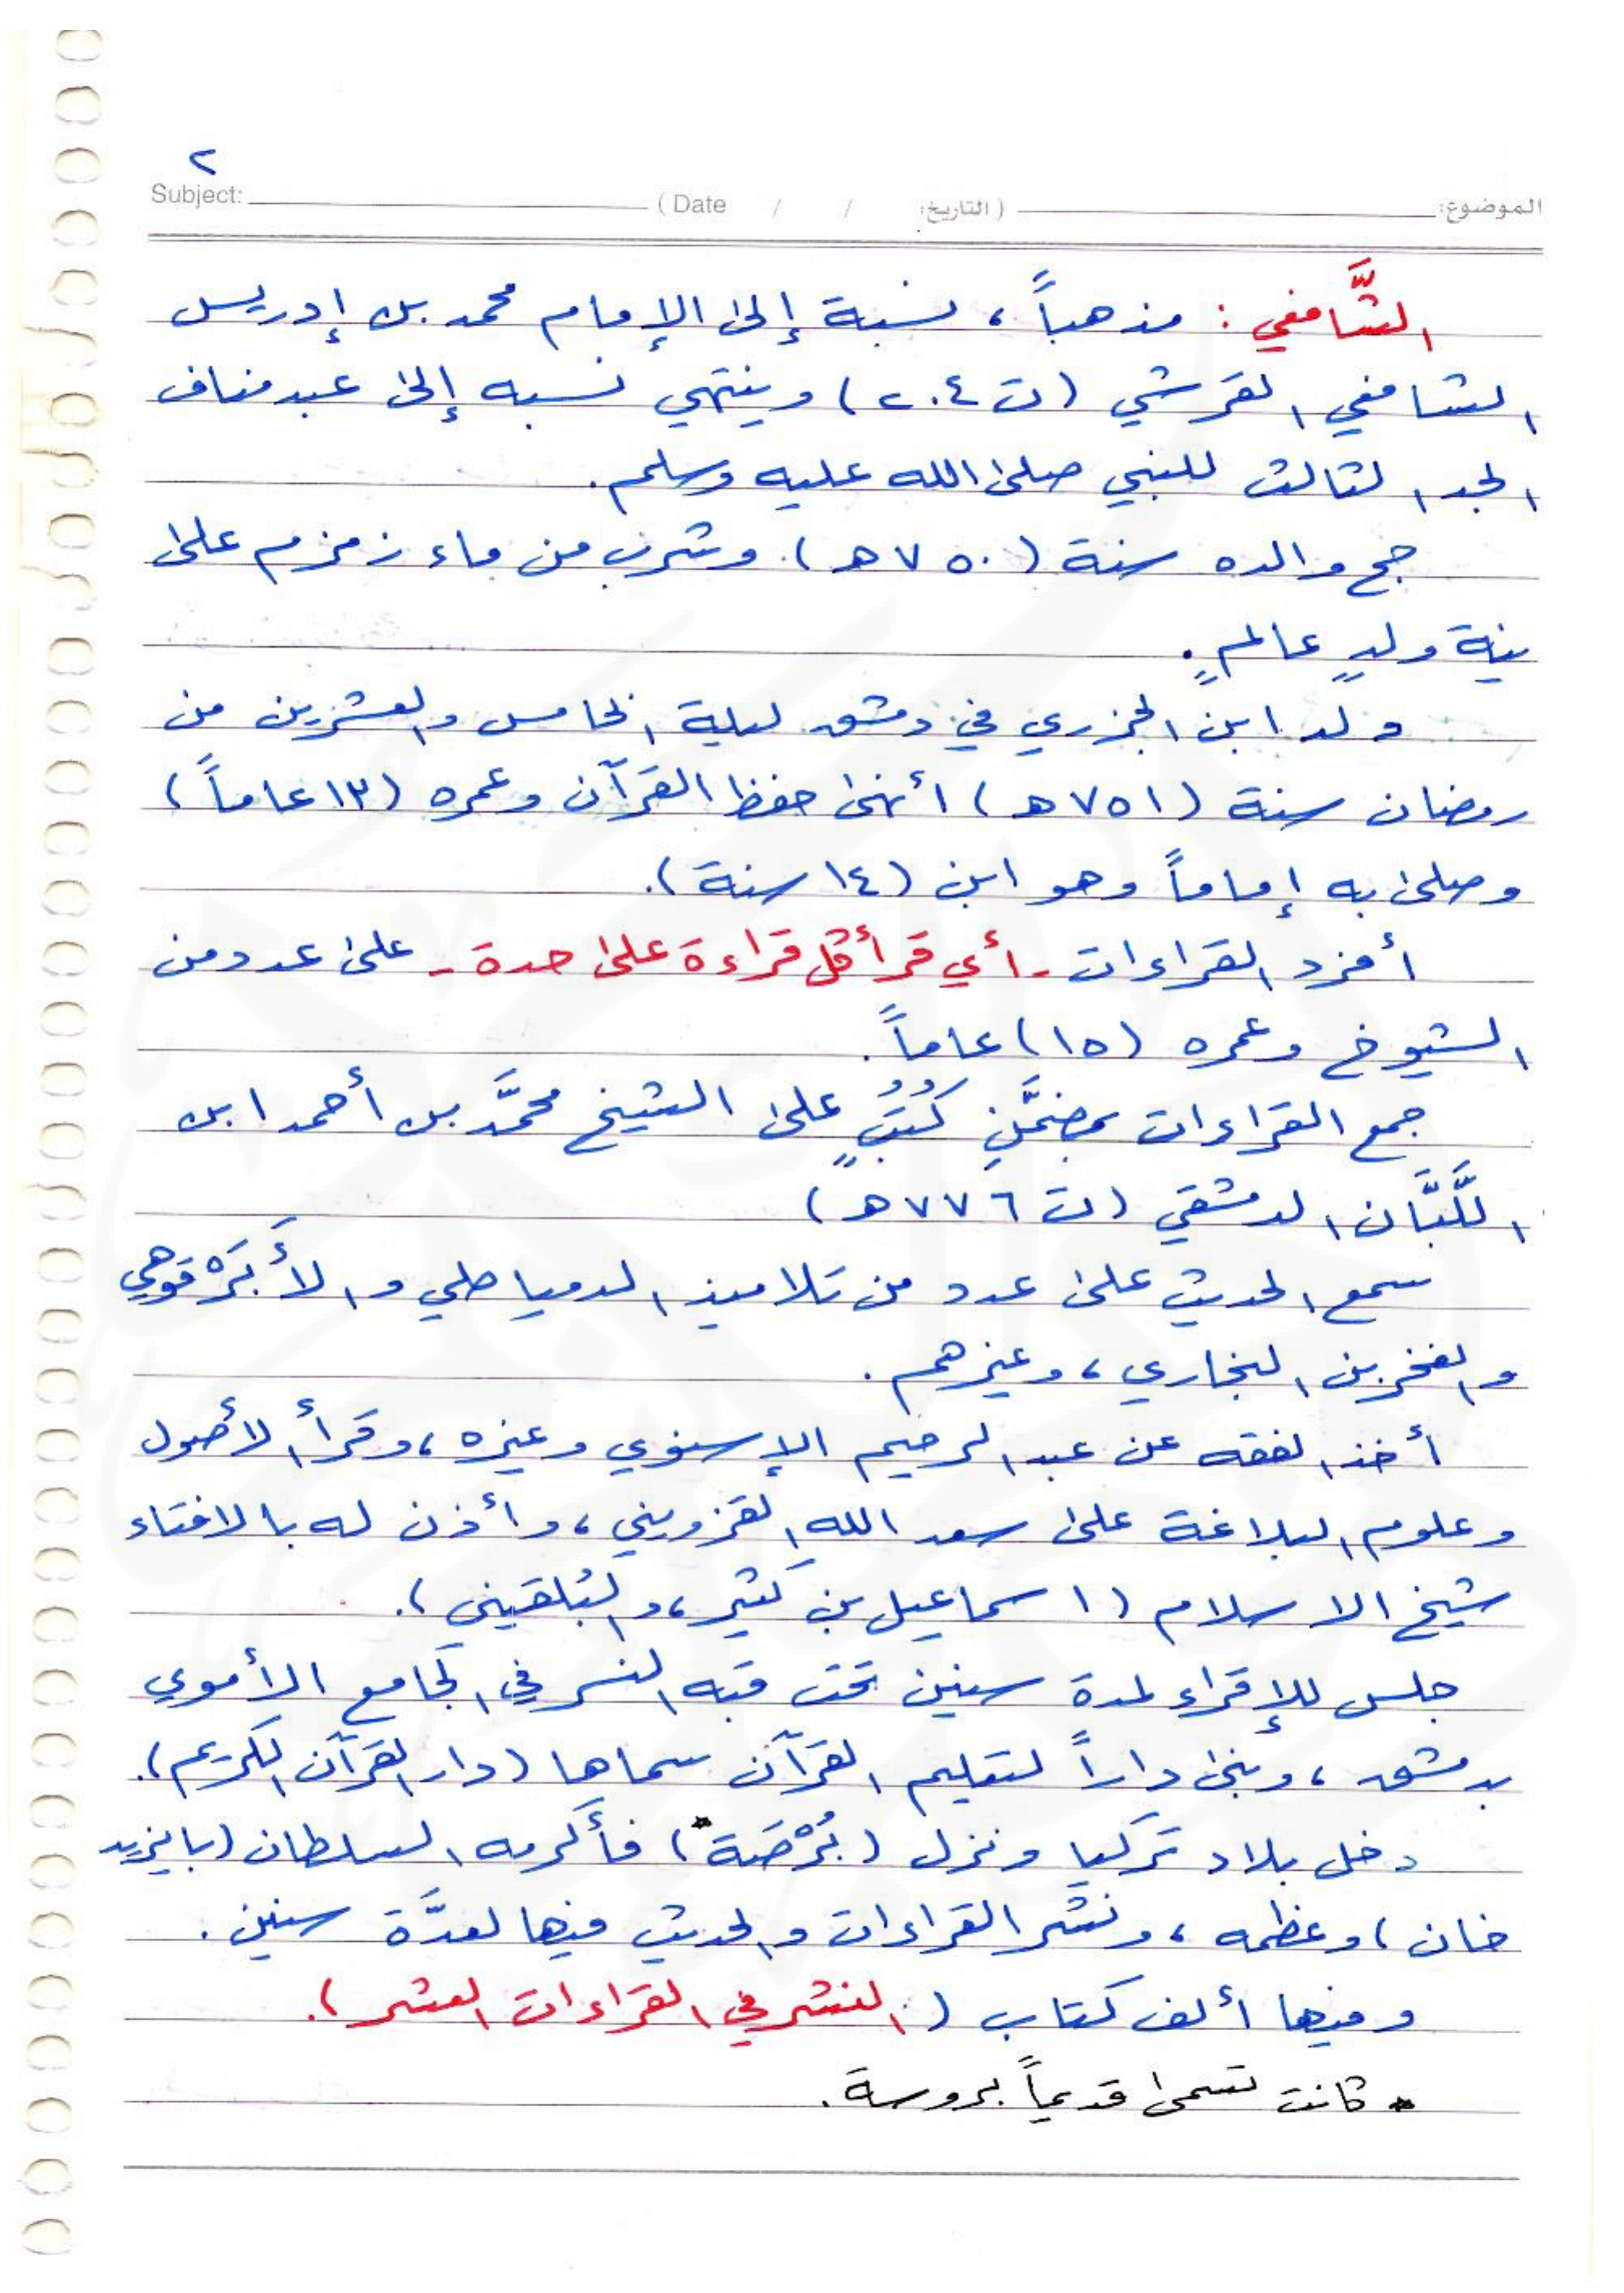 ٢
Subject: (Date / / التاريخ:) الموضوع:
الشَّافعي : مذهباً ، نسبة إلى الإمام محمد بن إدريس
الشافعي القرشي (ت ٢٠٤) وينتهي نسبه إلى عبد مناف
الجد الثالث للنبي صلى الله عليه وسلم.
حج والده سنة (٧٥٠ هـ) وشرب من ماء زمزم على
نية ولدٍ عالمٍ.
ولد ابن الجزري في دمشق ليلة الخامس والعشرين من
رمضان سنة (٧٥١ هـ) أنهى حفظ القرآن وعمره (١٣ عاماً)
وصلى به إماماً وهو ابن (١٤ سنة).
أفرد القراءات - أي قرأ كل قراءة على حدة - على عدد من
الشيوخ وعمره (١٥) عاماً.
جمع القراءات بمضمَّنِ كُتُبٍ على الشيخ محمَّد بن أحمد ابن
اللَّبَّان الدمشقي (ت ٧٧٦ هـ)
سمع الحديث على عدد من تلاميذ الدمياطي والأَبَرْقوهي
والفخر بن البخاري ، وغيرهم.
أخذ الفقه عن عبد الرحيم الإسنوي وغيره ، وقرأ الأصول
وعلوم البلاغة على سعد الله القزويني ، وأذن له بالافتاء
شيخ الاسلام (اسماعيل بن كثير ، والبُلقيني).
جلس للإقراء لمدة سنين تحت قبه النسر في الجامع الأموي
بدمشق ، وبنى داراً لتعليم القرآن سماها (دار القرآن الكريم).
دخل بلاد تركيا ونزل (بُرْصَة*) فأكرمه السلطان (بايزيد
خان) وعظمه ، ونشر القراءات والحديث فيها لعدَّة سنين.
وفيها ألف كتاب (النشر في القراءات العشر).
* كانت تسمى قديماً بروسة.